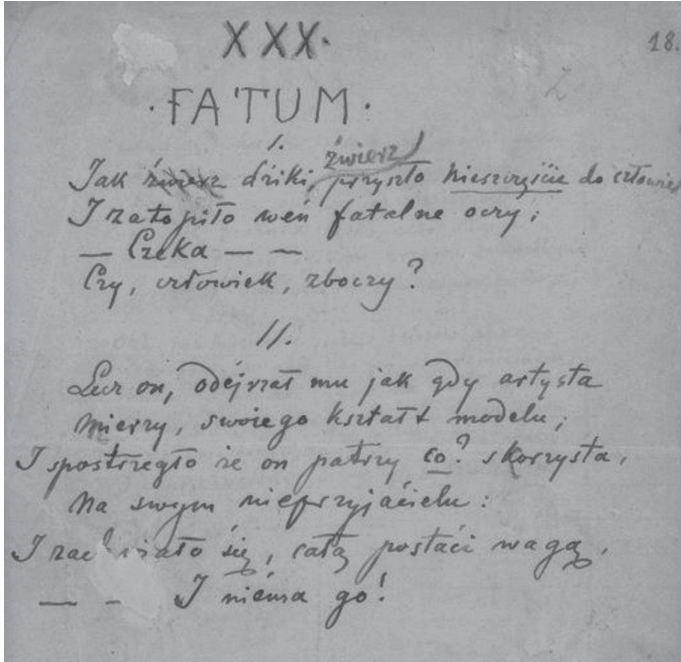 XXX.
18.
·FATUM·
I.
Jak dziki zwierz przyszło Nieszczęście do człowie
I zatopiło weń fatalne oczy;
— Czeka — —
Czy, człowiek, zboczy?
II.
Lecz on, odéjrzał mu jak gdy artysta
Mierzy, swojego kształt modelu;
I spostrzegło że on patrzy co? skorzysta,
Na swym nieprzyjácielu:
I zachwiało się, całą postaci wagą,
— — I niéma go!